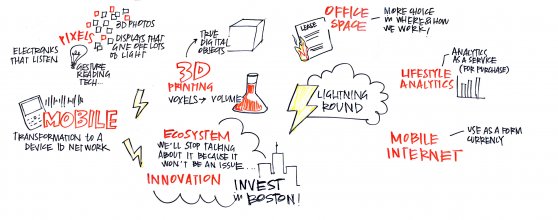 PIXELS
3D PHOTOS
DISPLAYS THAT
GIVE OFF LOTS
OF LIGHT
ELECTRONICS
THAT LISTEN
GESTURE
READING
TECH...
MOBILE
TRANSFORMATION TO A
DEVICE ID NETWORK
TRUE
DIGITAL
OBJECTS
3D
PRINTING
VOXELS → VOLUME
ECOSYSTEM
WE'LL STOP TALKING
ABOUT IT BECAUSE IT
WON'T BE AN ISSUE....
INNOVATION
INVEST
in BOSTON!
LIGHTNING
ROUND
LEASE
OFFICE
SPACE
MORE CHOICE
in WHERE & HOW
WE WORK!
LIFESTYLE
ANALYTICS
ANALYTICS
AS A SERVICE
(FOR PURCHASE)
MOBILE
INTERNET
USE AS A FORM
CURRENCY